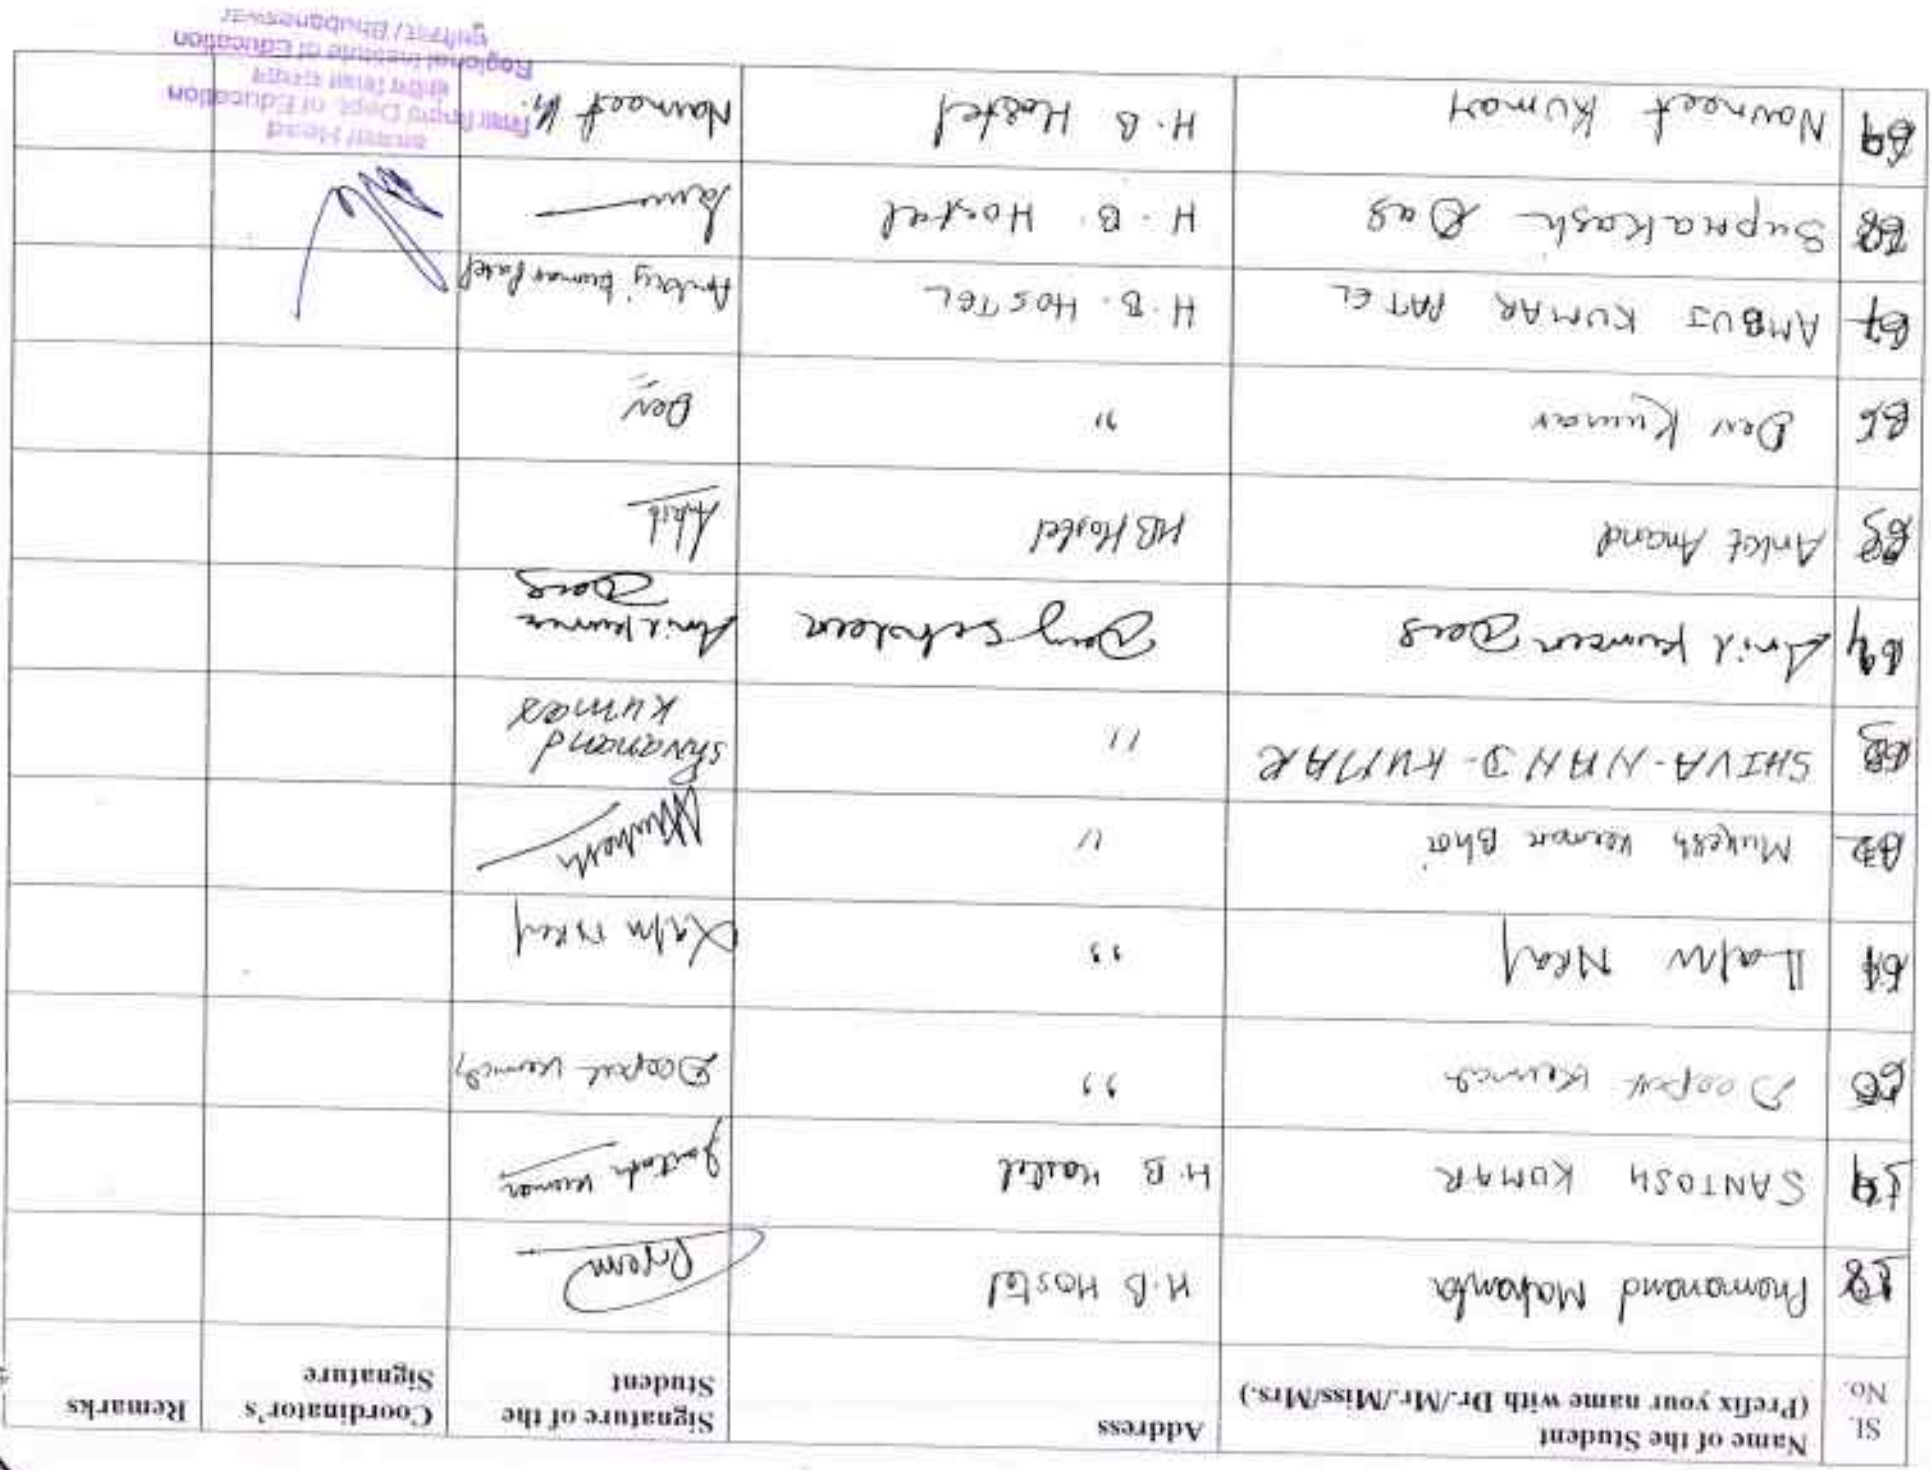 Sl. No. Name of the Student (Prefix your name with Dr./Mr./Miss/Mrs.) Address Signature of the Student Coordinator's Signature Remarks
58 Premanand Mahanta H.B Hostel Prem
59 SANTOSH KUMAR H.B Hostel Santosh Kumar
60 Deepak Kumar ,, Deepak Kumar
61
62 Mukesh Kumar Bhoi " Mukesh
63 SHIVA-NAND-KUMAR " Shivanand Kumar
64 Anil Kumar Das Day scholar Anil Kumar Das
65 Ankit Anand HB Hostel Ankit
66 Dev Kumar " Dev
67 AMBUJ KUMAR PATEL H.B. HOSTEL Ambuj Kumar Patel
68 Suprakash Das H.B. Hostel
69 Navneet Kumar H.B Hostel Navneet K.
Head
Dept. of Education
Regional Institute of Education
Bhubaneswar